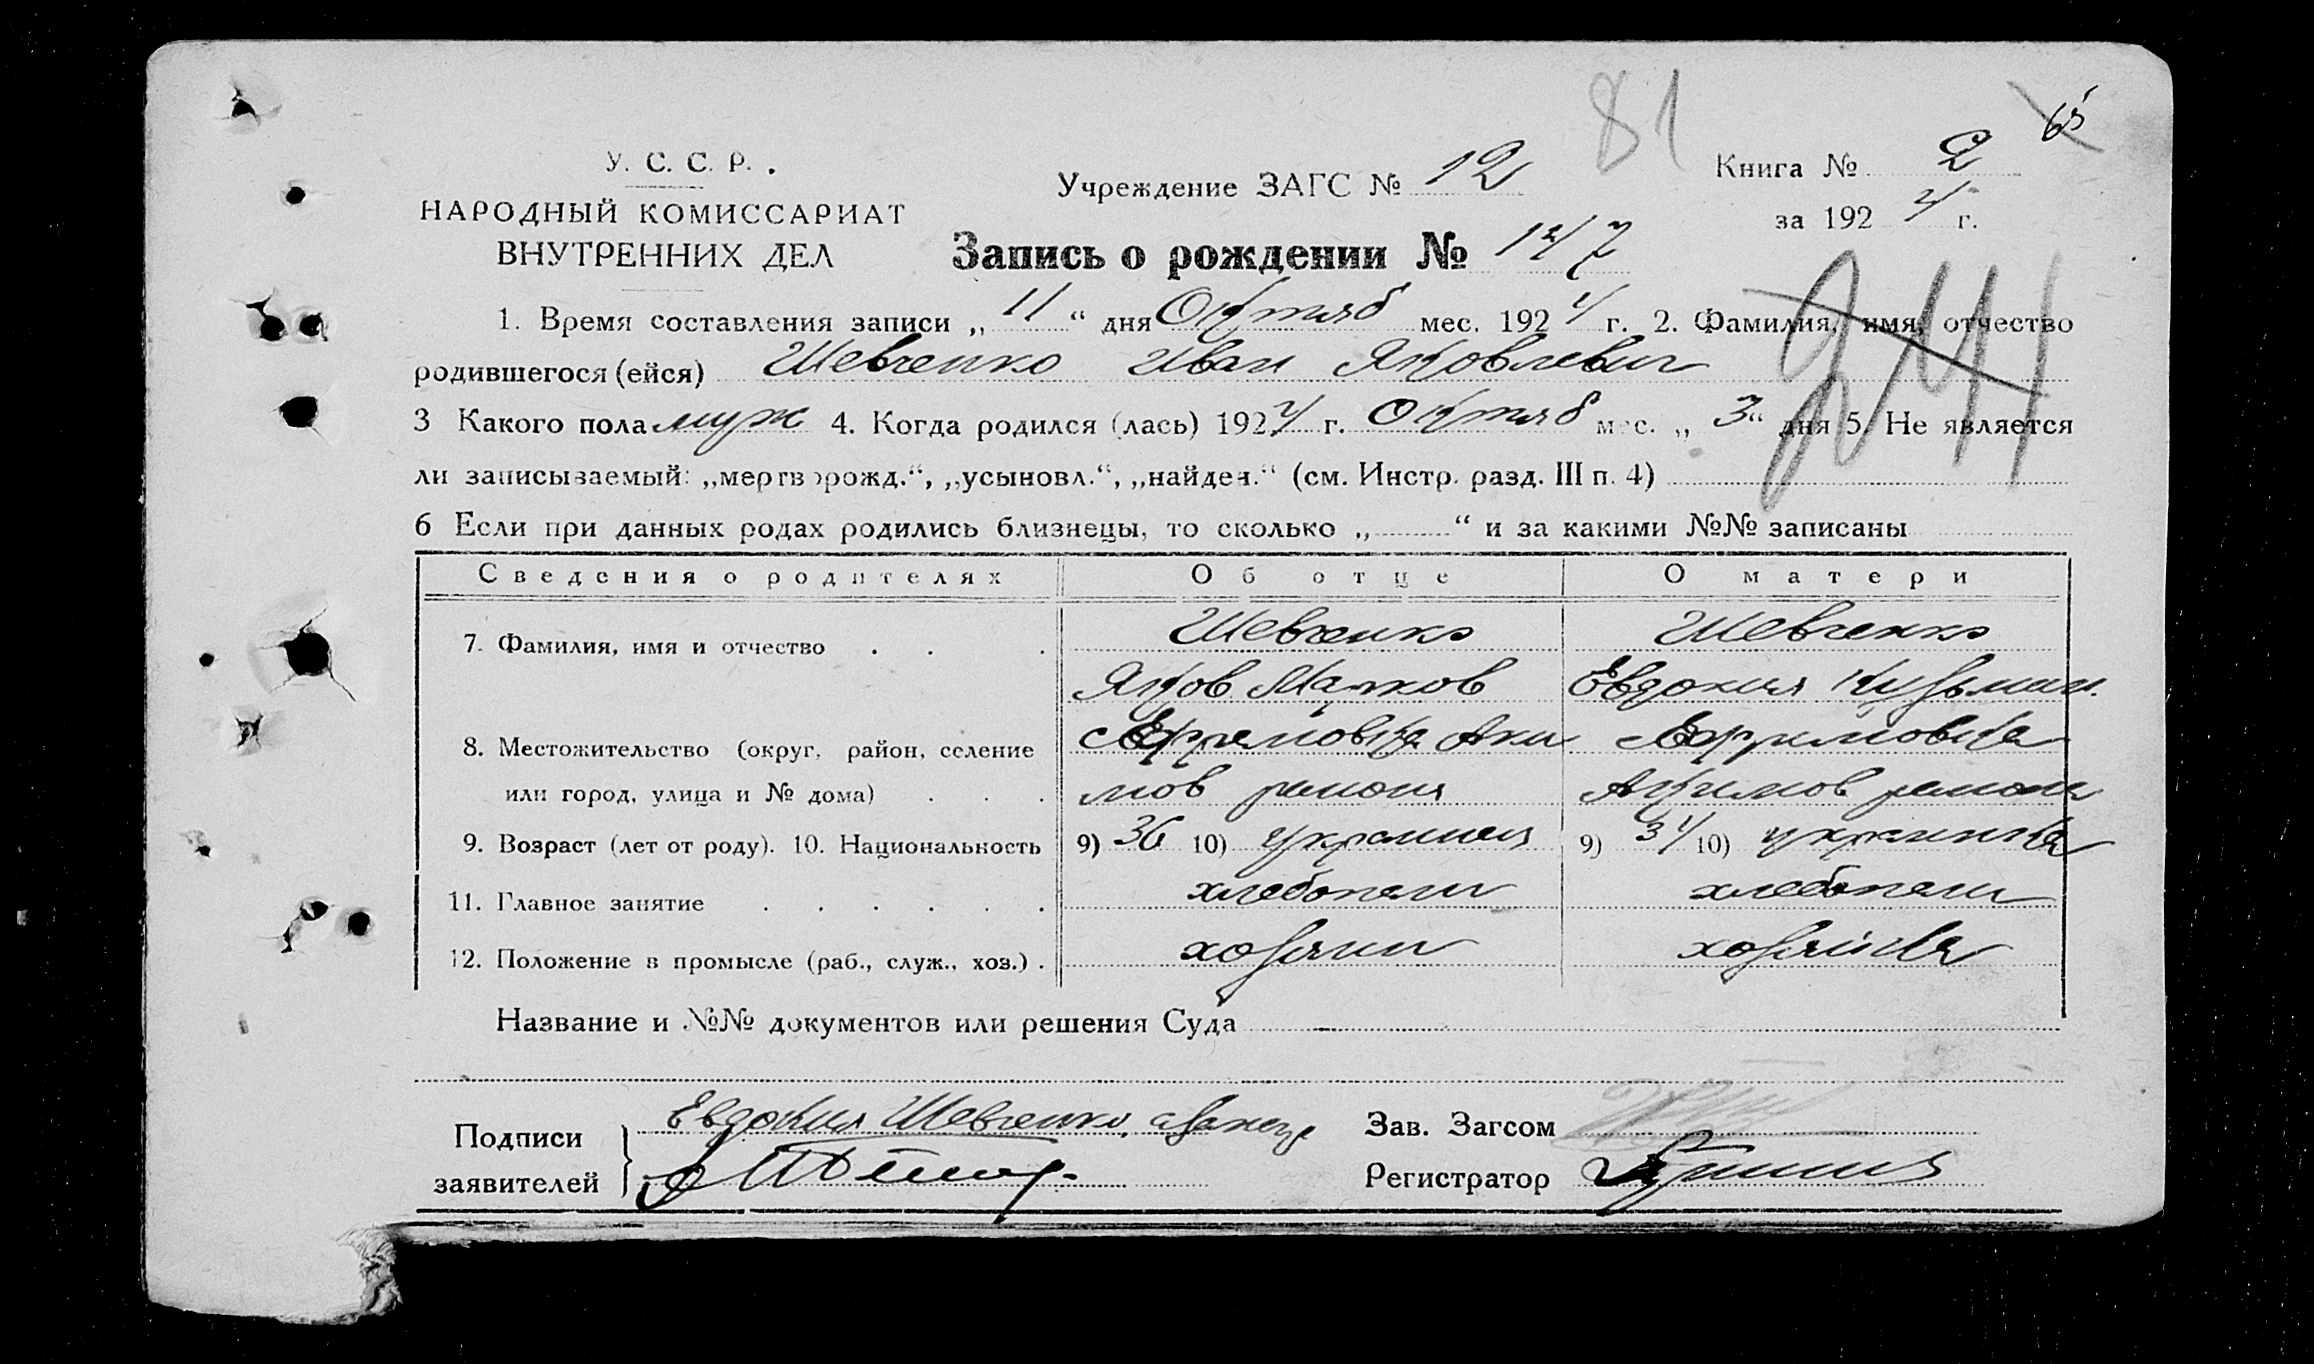 81
65
У. С. С. Р.
НАРОДНЫЙ КОМИССАРИАТ
ВНУТРЕННИХ ДЕЛ
Учреждение ЗАГС № 12
Книга № 2
за 1924 г.
Запись о рождении № 147
241
1. Время составления записи „11“ дня Октяб мес. 1924 г. 2. Фамилия, имя, отчество
родившегося (ейся) Шевченко Иван Яковлевич
3 Какого пола муж 4. Когда родился (лась) 1924 г. Октяб мес. „3“ дня 5. Не является
ли записываемый: „мертворожд.“, „усыновл.“, „найден.“ (см. Инстр. разд. III п. 4)
6 Если при данных родах родились близнецы, то сколько „ “ и за какими №№ записаны
Сведения о родителях Об отце О матери
7. Фамилия, имя и отчество Шевченко Шевченко
Яков Евдокия Кузьмин.
8. Местожительство (округ, район, селение Ефремовка Аки Ефремовка
или город, улица и № дома) мов района Акимов района
9. Возраст (лет от роду). 10. Национальность 9) 36 10) украинец 9) 34 10) украинка
11. Главное занятие хлебопаш хлебопаш
12. Положение в промысле (раб., служ., хоз.) хозяин хозяйка
Название и №№ документов или решения Суда
Подписи
заявителей
Евдокия Шевченко
Зав. Загсом
Регистратор